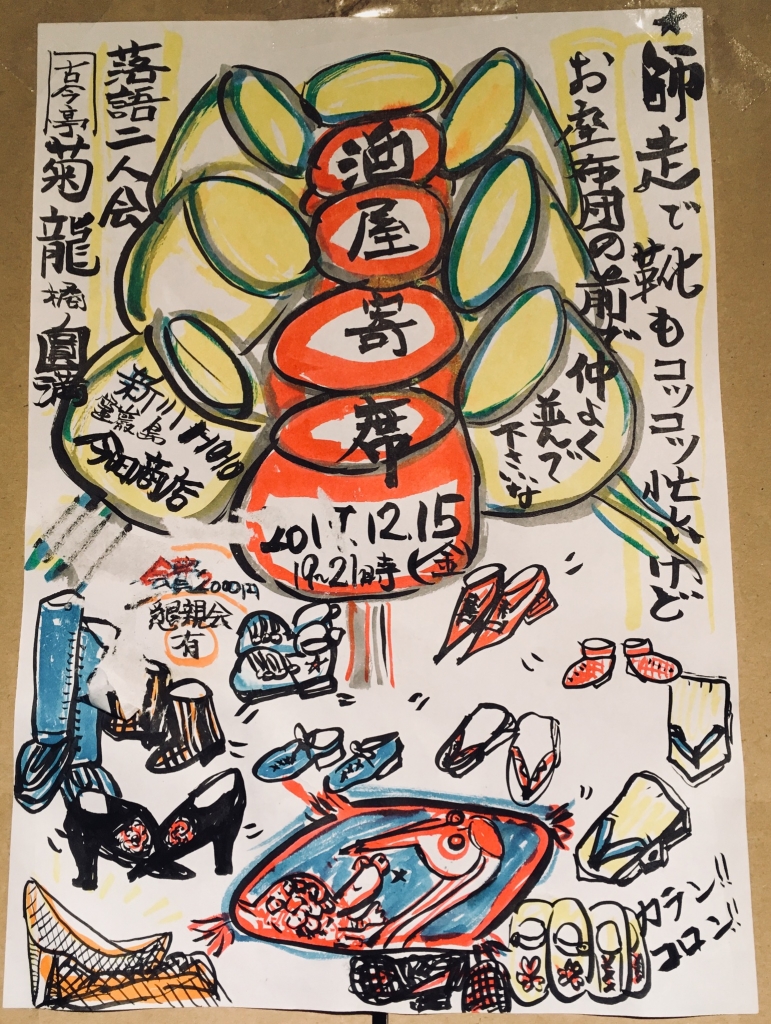 ★師走で靴もコッコツ忙しいけど
お座布団の前で仲よく
並んで
下さいな
酒屋寄席
落語二人会
古今亭菊龍
橘ノ圓満
新川1-10-10
霊巌島
今田商店
2017.12.15
19~21時(金)
会費2000円
懇親会
有
カラン!!
コロン!!